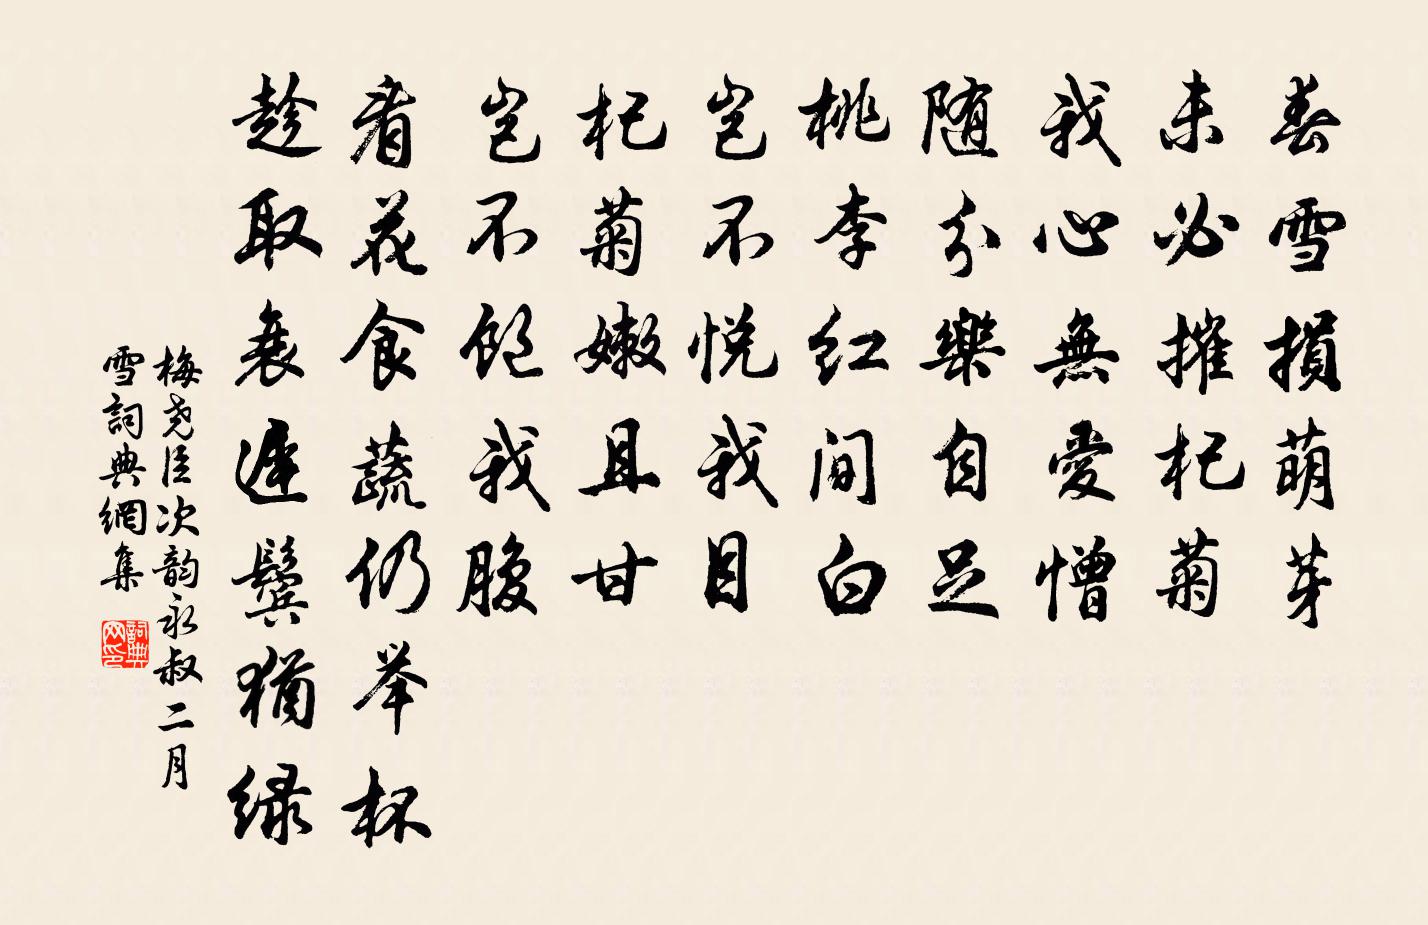 春雪損萌芽
未必摧杞菊
我心無愛憎
随分樂自足
桃李红间白
豈不悦我目
杞菊嫩且甘
豈不飽我腹
看花食蔬仍举杯
趁取衰遲鬢猶绿
梅尧臣次韵永叔二月
雪詞典網集
詞典
网印